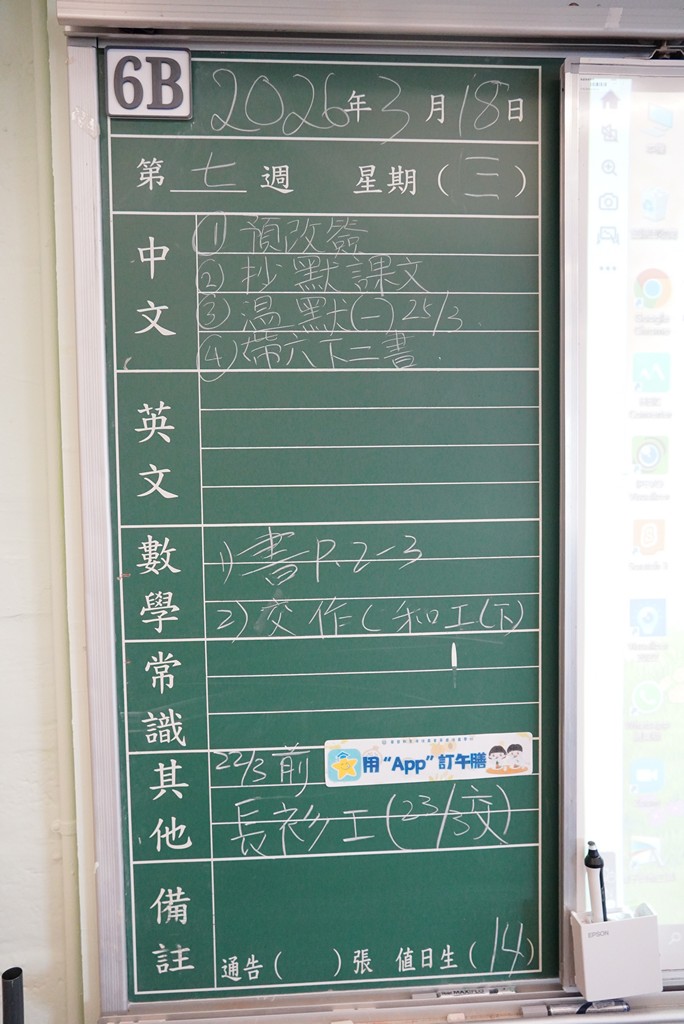 6B
2026年3月18日
第 七 週 星期（三）
中文
① 預改簽
② 抄默課文
③ 温默(一) 25/3.
④ 帶六下二書.
英文
數學
1) 書P.2-3
2) 交作(和工(下)
常識
其他
22/3前
用“App”訂午膳
長衫工(23/3交)
備註
通告（ ）張 值日生（14）
EPSON